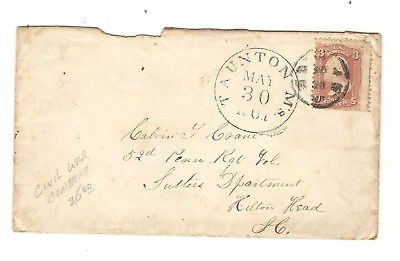 TAUNTON Ms
MAY
30
3
3
Calvin T. Crane
52d Penn Rgt Vol.
Sutlers Dpartment
Hilton Head
S.C.
CIVIL WAR
CONTENT
25 00